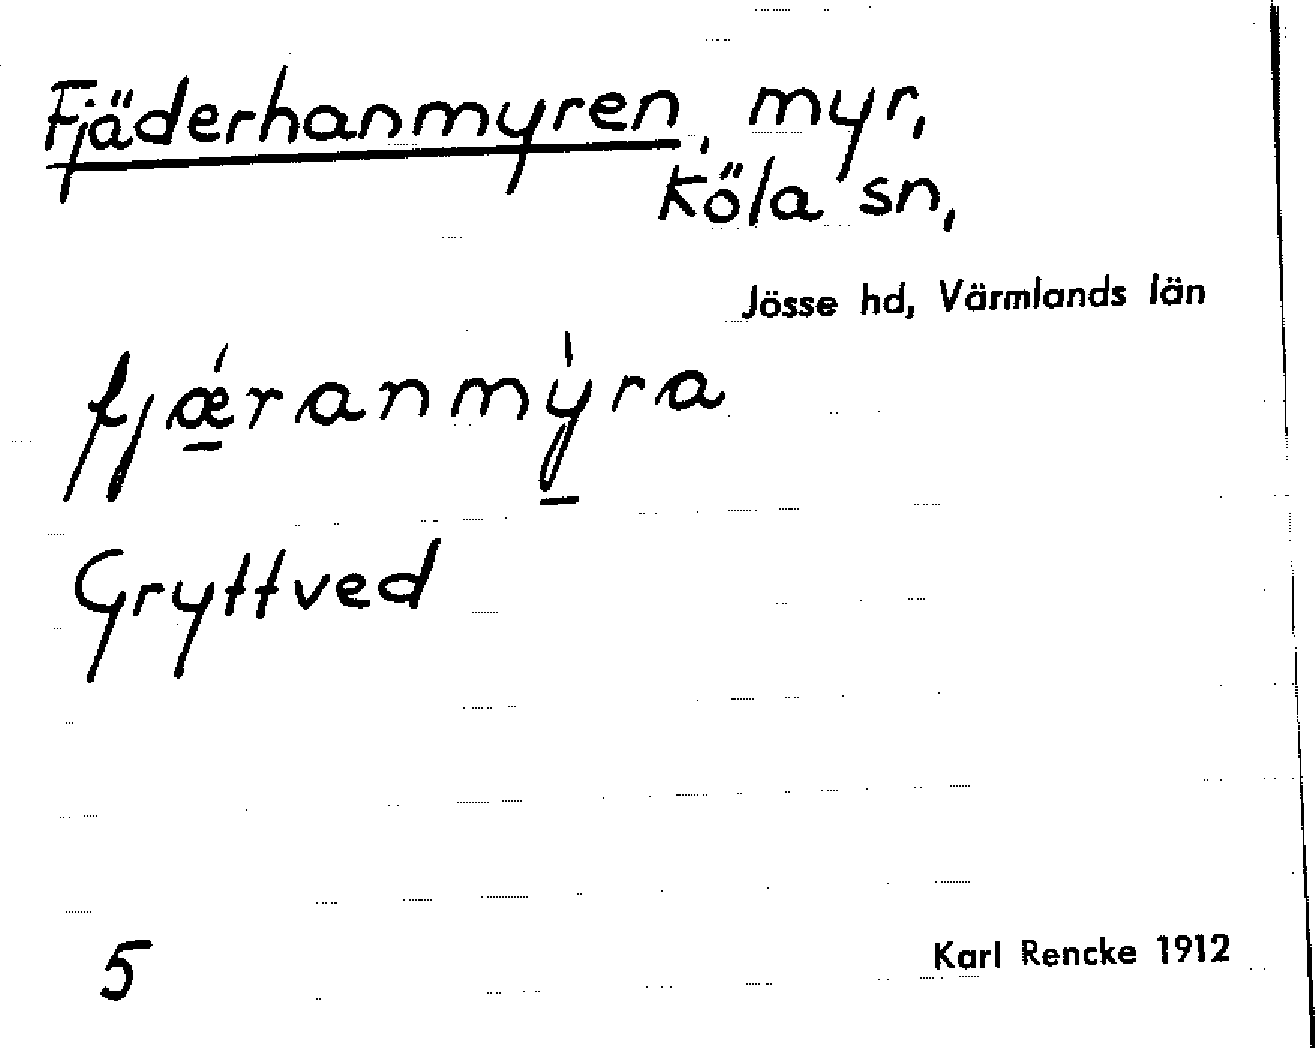 Fjäderhanmyren, myr,
Köla sn,
Jösse hd, Värmlands län
fjǽ̲ranmỳ̲ra
Gryttved
5
Karl Rencke 1912